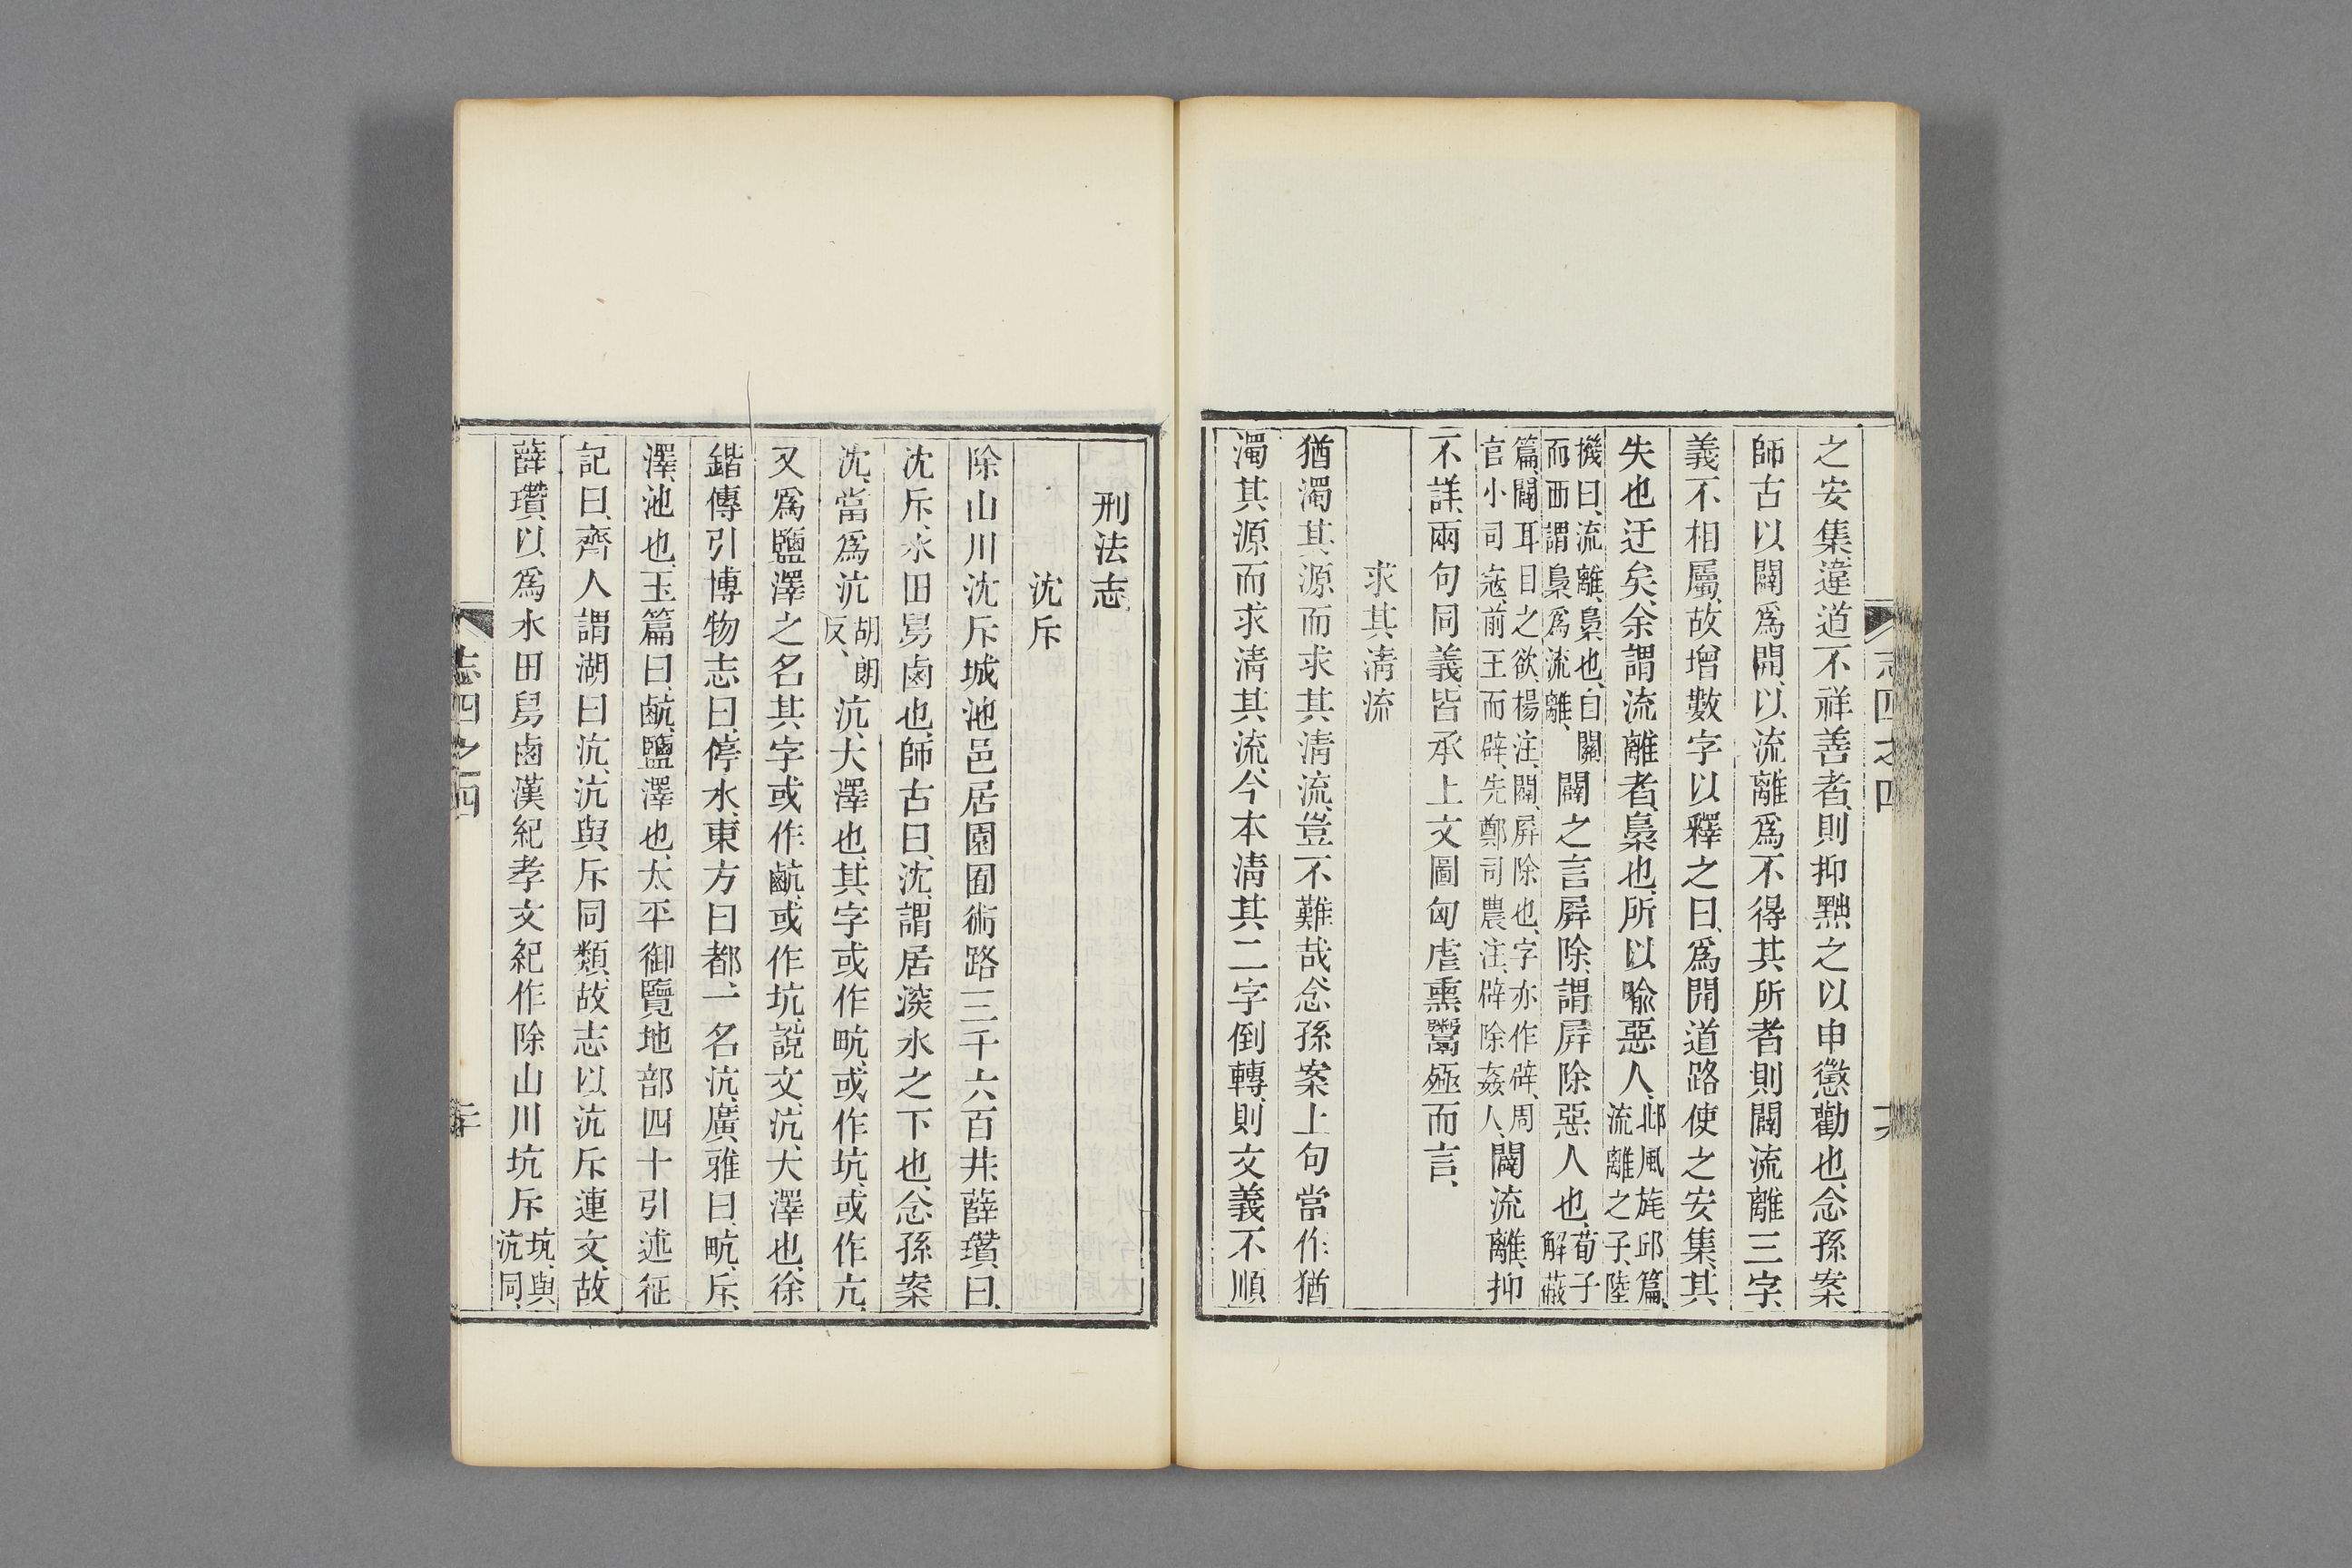 之安集違道不祥善者則抑黜之以申懲勸也念孫案
師古以闢爲開以流離爲不得其所者則闢流離三字
義不相屬故增數字以釋之曰爲開道路使之安集其
失也迂矣余謂流離者梟也所以喻惡人邶風旄邱篇流離之子陸
機曰流離梟也自關而西謂梟爲流離闢之言屛除謂屛除惡人也荀子解蔽
篇闢耳目之欲楊注闢屛除也字亦作辟周官小司寇前王而辟先鄭司農注辟除姦人闢流離抑
不詳兩句同義皆承上文圖匈虐熏鬻殛而言
求其淸流
猶濁其源而求其淸流豈不難哉念孫案上句當作猶
濁其源而求淸其流今本淸其二字倒轉則文義不順
志四之四
刑法志
沈斥
除山川沈斥城池邑居園囿術路三千六百井薛瓚曰
沈斥水田舄鹵也師古曰沈謂居深水之下也念孫案
沈當爲沆胡朗反沆大澤也其字或作畮或作坑或作亢
又爲鹽澤之名其字或作䴚或作坑說文沆大澤也徐
鍇傳引博物志曰停水東方曰都一名沆廣雅曰畮斥
澤池也玉篇曰䴚鹽澤也太平御覽地部四十引述征
記曰齊人謂湖曰沆沆與斥同類故志以沆斥連文故
薛瓚以爲水田舄鹵漢紀孝文紀作除山川坑斥坑與沆同
志四之四